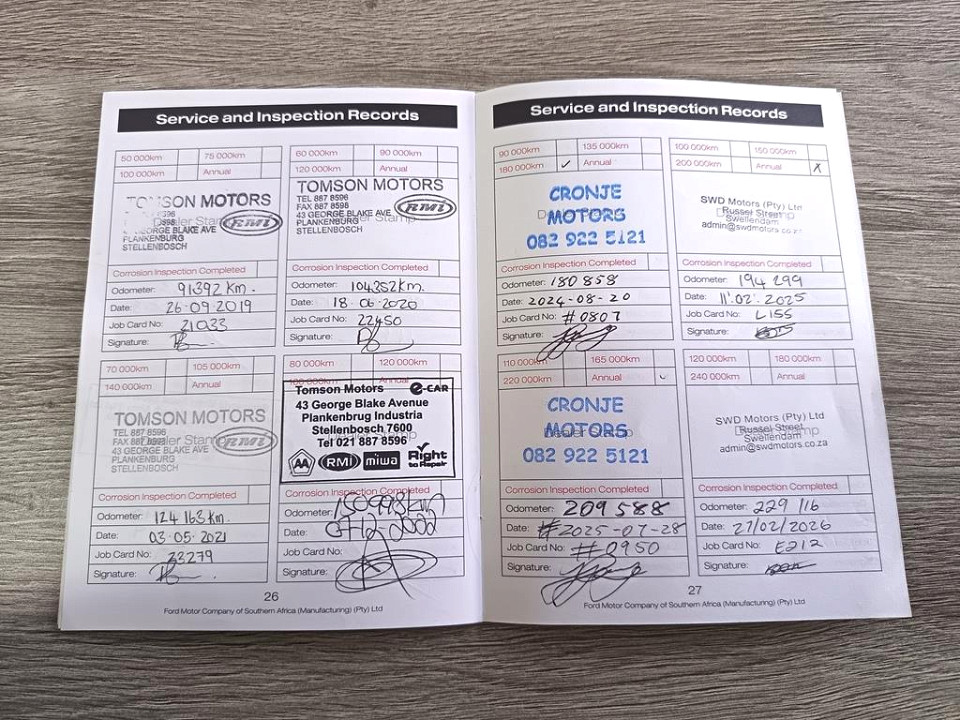 Service and Inspection Records
50 000km 75 000km
100 000km Annual
TOMSON MOTORS
Dealer Stamp RMI
GEORGE BLAKE AVE
PLANKENBURG
STELLENBOSCH
Corrosion Inspection Completed
Odometer: 91392 Km.
Date: 26-09-2019
Job Card No: 21033
Signature:
60 000km 90 000km
120 000km Annual
TOMSON MOTORS
TEL 887 8596
FAX 887 8598
43 GEORGE BLAKE AVE
PLANKENBURG
STELLENBOSCH
RMI
Corrosion Inspection Completed
Odometer: 104252km.
Date: 18-06-2020
Job Card No: 22450
Signature:
70 000km 105 000km
140 000km Annual
TOMSON MOTORS
TEL 887 8596
FAX 887 8598
43 GEORGE BLAKE AVE
PLANKENBURG
STELLENBOSCH
RMI
Corrosion Inspection Completed
Odometer: 124 163 km.
Date: 03.05.2021
Job Card No: 23279
Signature:
80 000km 120 000km
160 000km Annual
Tomson Motors e-CAR
43 George Blake Avenue
Plankenbrug Industria
Stellenbosch 7600
Tel 021 887 8596
AA RMI miwa Right to Repair
Corrosion Inspection Completed
Odometer: 150998km
Date:
Job Card No:
Signature:
26
Ford Motor Company of Southern Africa (Manufacturing) (Pty) Ltd
Service and Inspection Records
90 000km 135 000km
180 000km ✓ Annual
CRONJE
MOTORS
082 922 5121
Corrosion Inspection Completed
Odometer: 180 858
Date: 2024-08-20
Job Card No: #0807
Signature:
100 000km 150 000km
200 000km Annual X
SWD Motors (Pty) Ltd
Russel Street
Swellendam
admin@swdmotors.co.za
Corrosion Inspection Completed
Odometer: 194 299
Date: 11.02.2025
Job Card No: L155
Signature:
110 000km 165 000km
220 000km Annual ✓
CRONJE
MOTORS
Dealer Stamp
082 922 5121
Corrosion Inspection Completed
Odometer: 209 588
Date: #2025-07-28
Job Card No: #0950
Signature:
120 000km 180 000km
240 000km Annual
SWD Motors (Pty) Ltd
Russel Street
Swellendam
admin@swdmotors.co.za
Corrosion Inspection Completed
Odometer: 229 116
Date: 27/02/2026
Job Card No: E212
Signature:
27
Ford Motor Company of Southern Africa (Manufacturing) (Pty) Ltd